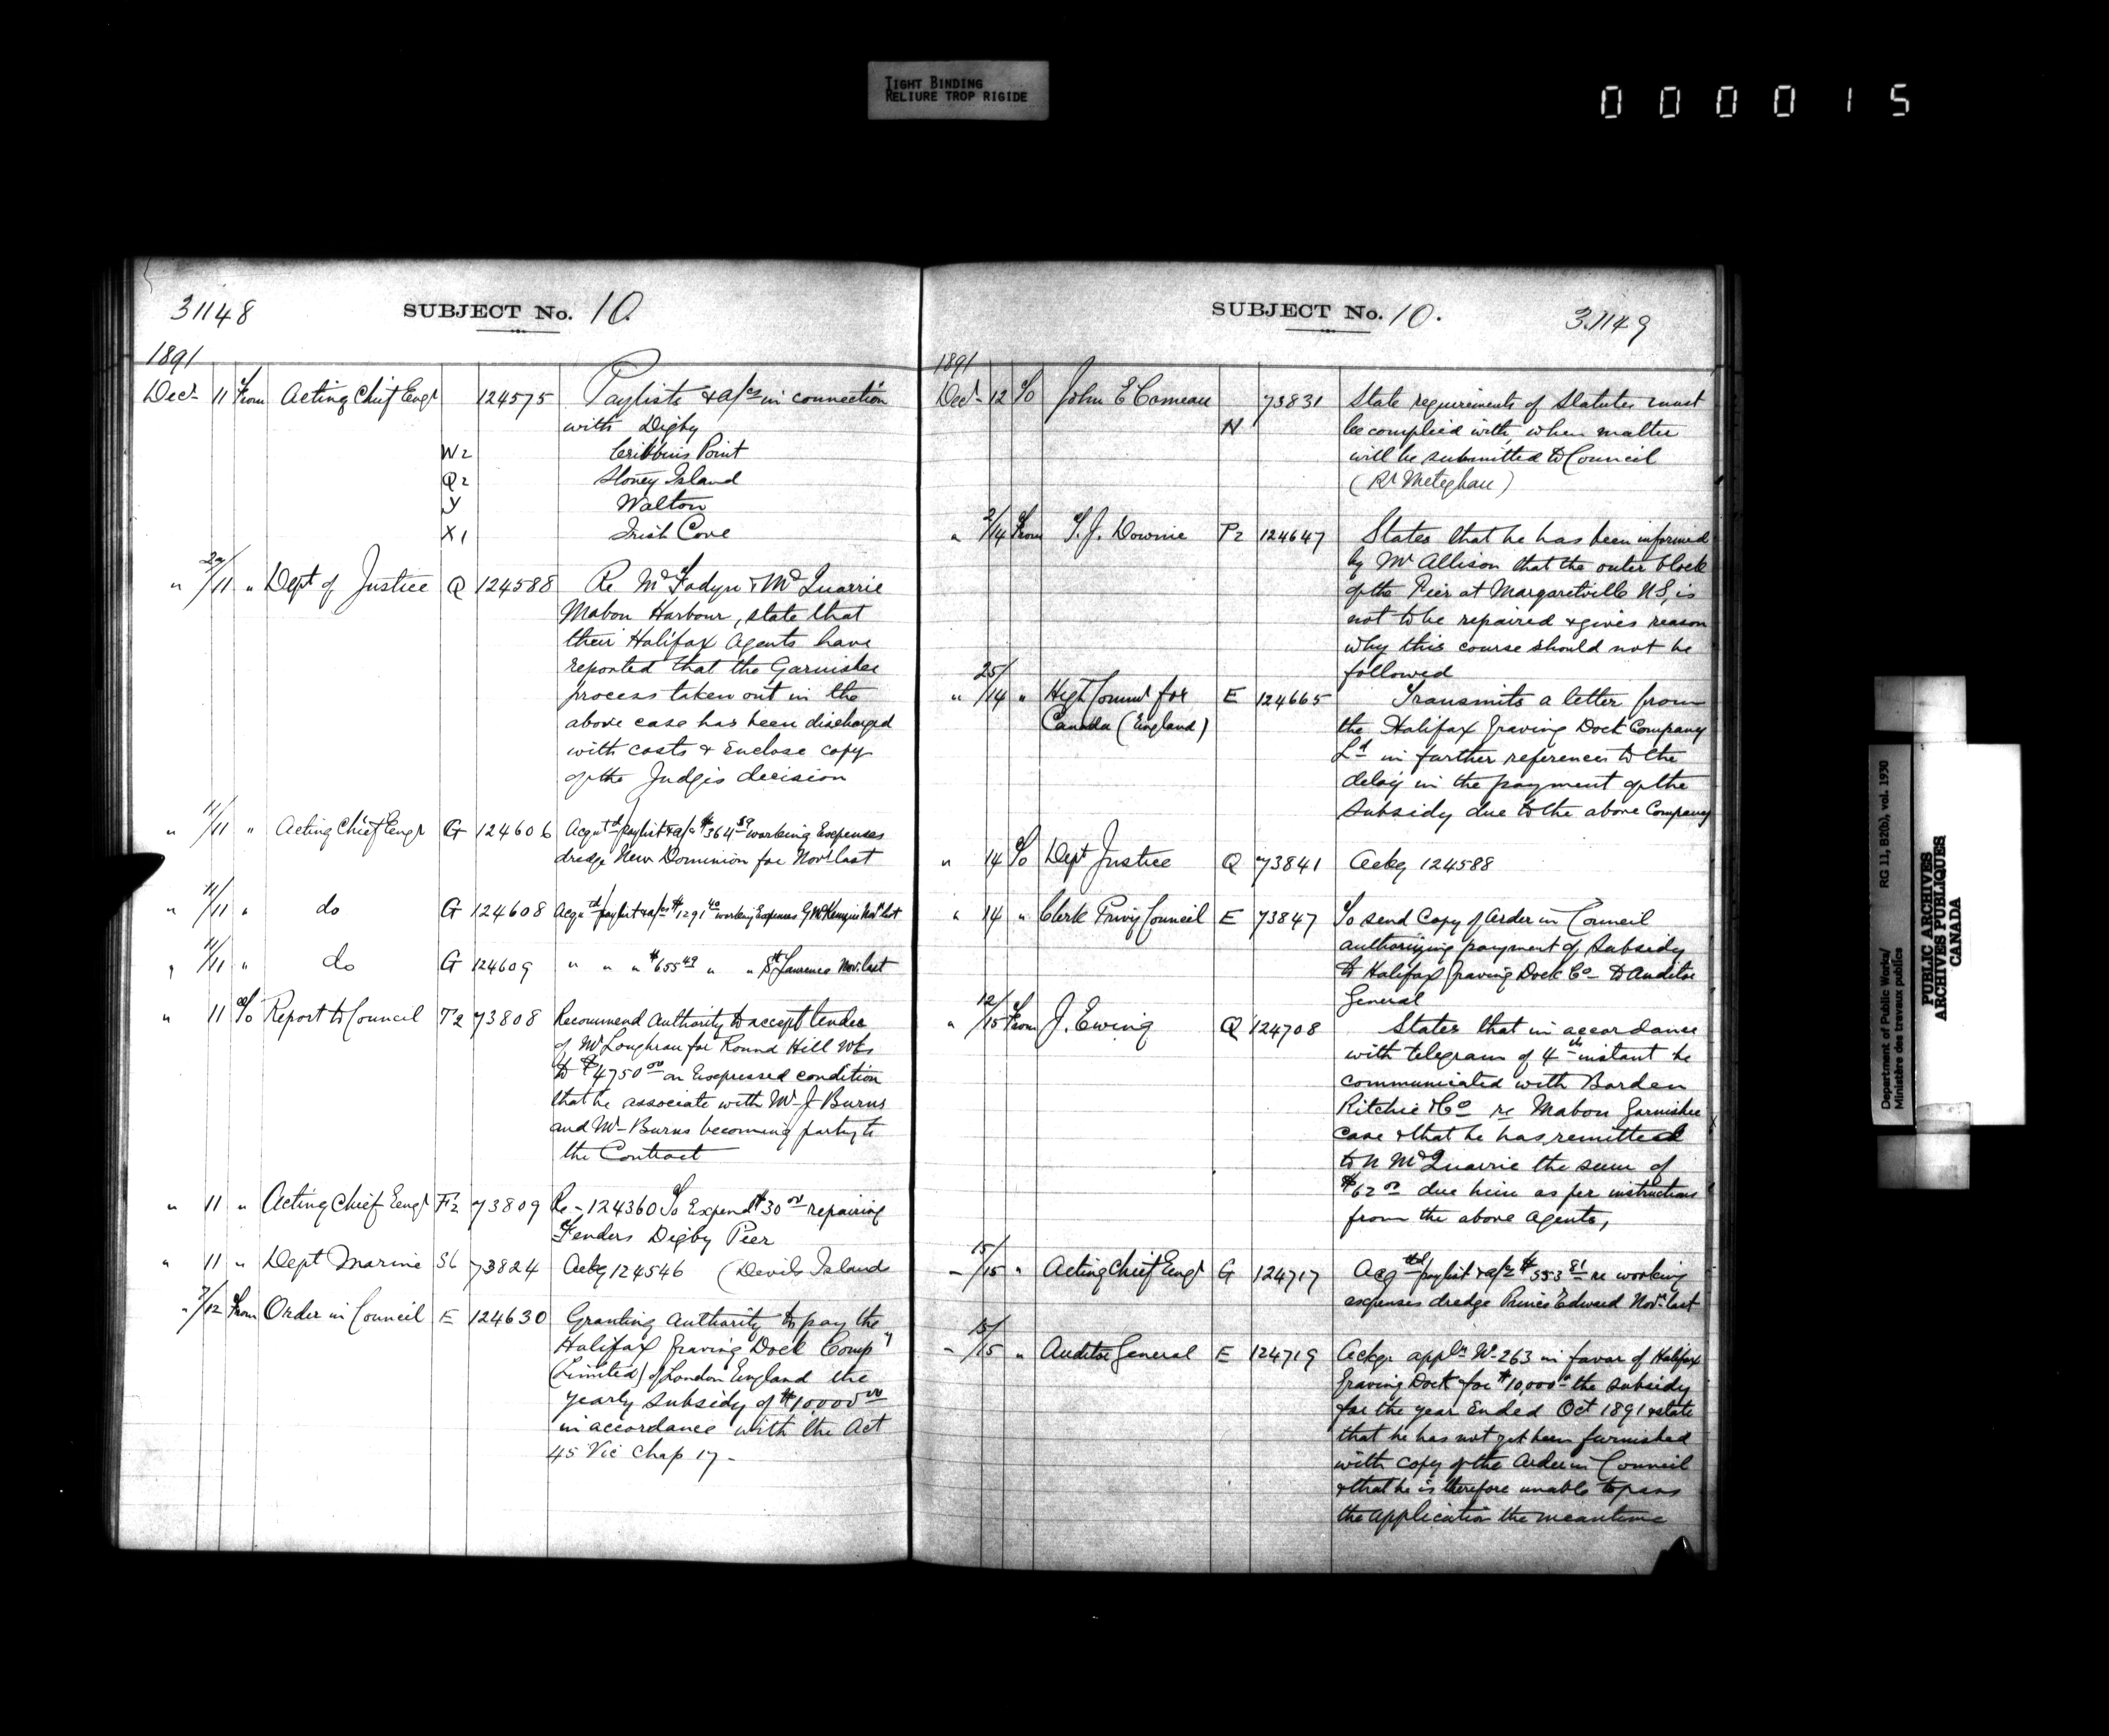 TIGHT BINDING
RELIURE TROP RIGIDE
000015
31148 SUBJECT No. 10.
1891
Decr 11 From Acting Chief Engr 124575 Paylists & a/cs in connection
with Digby
W2 Cribbins Point
Q2 Stoney Island
Y Walton
X1 Irish Cove
" /11 " Dept of Justice Q 124588 Re McFadyn & McQuarrie
Mabou Harbour, state that
their Halifax Agents have
reported that the Garnishee
process taken out in the
above case has been discharged
with costs & Enclose copy
of the Judges decision
" 11/11 " Acting Chief Engr G 124606 paylist & a/c $364 59 working Expenses
dredge New Dominion for Novr last
" 11/11 " do G 124608 paylist & a/cs $1291 40 working Expenses G McKenzie Novr last
" 11/11 " do G 124609 " " " $655 49 " " St Lawrence Nov. last
" 11 To Report to Council T2 73808 Recommend Authority to accept tender
of Mr Loughran for Round Hill Wks
to $4750 00 on Expressed condition
that he associate with Mr J Burns
and Mr Burns becoming party to
the Contract
" 11 " Acting Chief Engr F2 73809 Re - 124360 To Expend $30 00 repairing
Fenders Digby Pier
" 11 " Dept Marine S6 73824 Ackg 124546 (Devils Island
" 7/12 From Order in Council E 124630 Granting Authority to pay the
Halifax Graving Dock Compy
(Limited) of London England the
yearly subsidy of $10,000 00
in accordance with the Act
45 Vic Chap 17 -
SUBJECT No. 10. 31149
1891
Decr 12 To John E Comeau N 73831 State requirements of Statutes must
be complied with, when matter
will be submitted to Council
(Rr Meteghan)
" 2/14 From T. J. Downie P2 124647 States that he has been informed
by Mr Allison that the outer block
of the Pier at Margaretville N.S, is
not to be repaired & gives reason
why this course should not be
followed
" 25/14 " High Commr for E 124665 Transmits a letter from
Canada (England) the Halifax Graving Dock Company
Ld in further references to the
delay in the payment of the
subsidy due to the above Company
" 14 To Dept Justice Q 73841 Ackg 124588
" 14 " Clerk Privy Council E 73847 To send Copy of Order in Council
authorizing payment of Subsidy
to Halifax Graving Dock Co - to Auditor
General
" 12/15 From J. Ewing Q 124708 States that in accordance
with telegram of 4th instant he
communicated with Borden
Ritchie & Co re Mabou Garnishee
case & that he has remitted
to N McQuarrie the sum of
$62 00 due him as per instructions
from the above Agents,
- 15/15 " Acting Chief Engr G 124717 paylist & a/c $553 81 re working
expenses dredge Prince Edward Novr last
- 15/15 " Auditor General E 124719 Ackg. appln No 263 in favor of Halifax
Graving Dock for $10,000 the subsidy
for the year Ended Oct 1891 & state
that he has not yet been furnished
with copy of the Order in Council
& that he is therefore unable to pass
the application the meantime
Department of Public Works/ RG 11, B2(b), vol. 1930
Ministère des travaux publics
PUBLIC ARCHIVES
ARCHIVES PUBLIQUES
CANADA